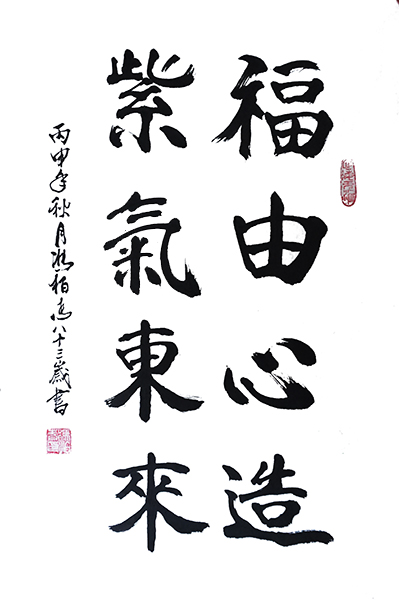 福由心造
紫氣東來
丙申年秋月 柏 八十三歲書